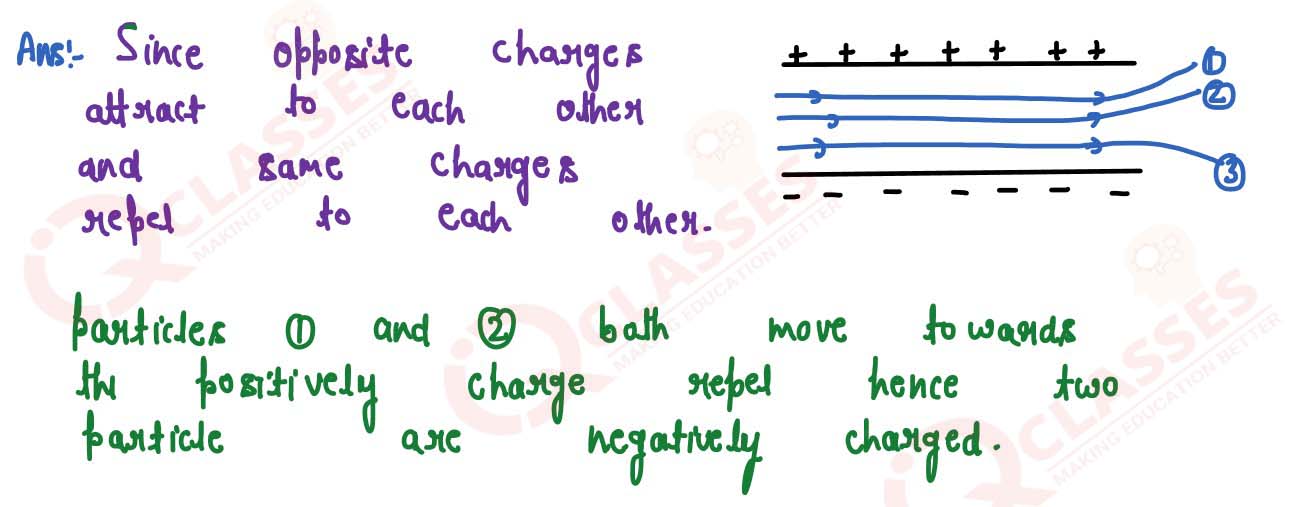 Ans:- Since opposite charges
attract to each other
and same charges
repel to each other.
+ + + + + + +
①
②
③
- - - - - - -
particles ① and ② both move towards
th positively charge repel hence two
particle are negatively charged.
CLASSES
MAKING EDUCATION BETTER
CLASSES
MAKING EDUCATION BETTER
CLASSES
MAKING EDUCATION BETTER